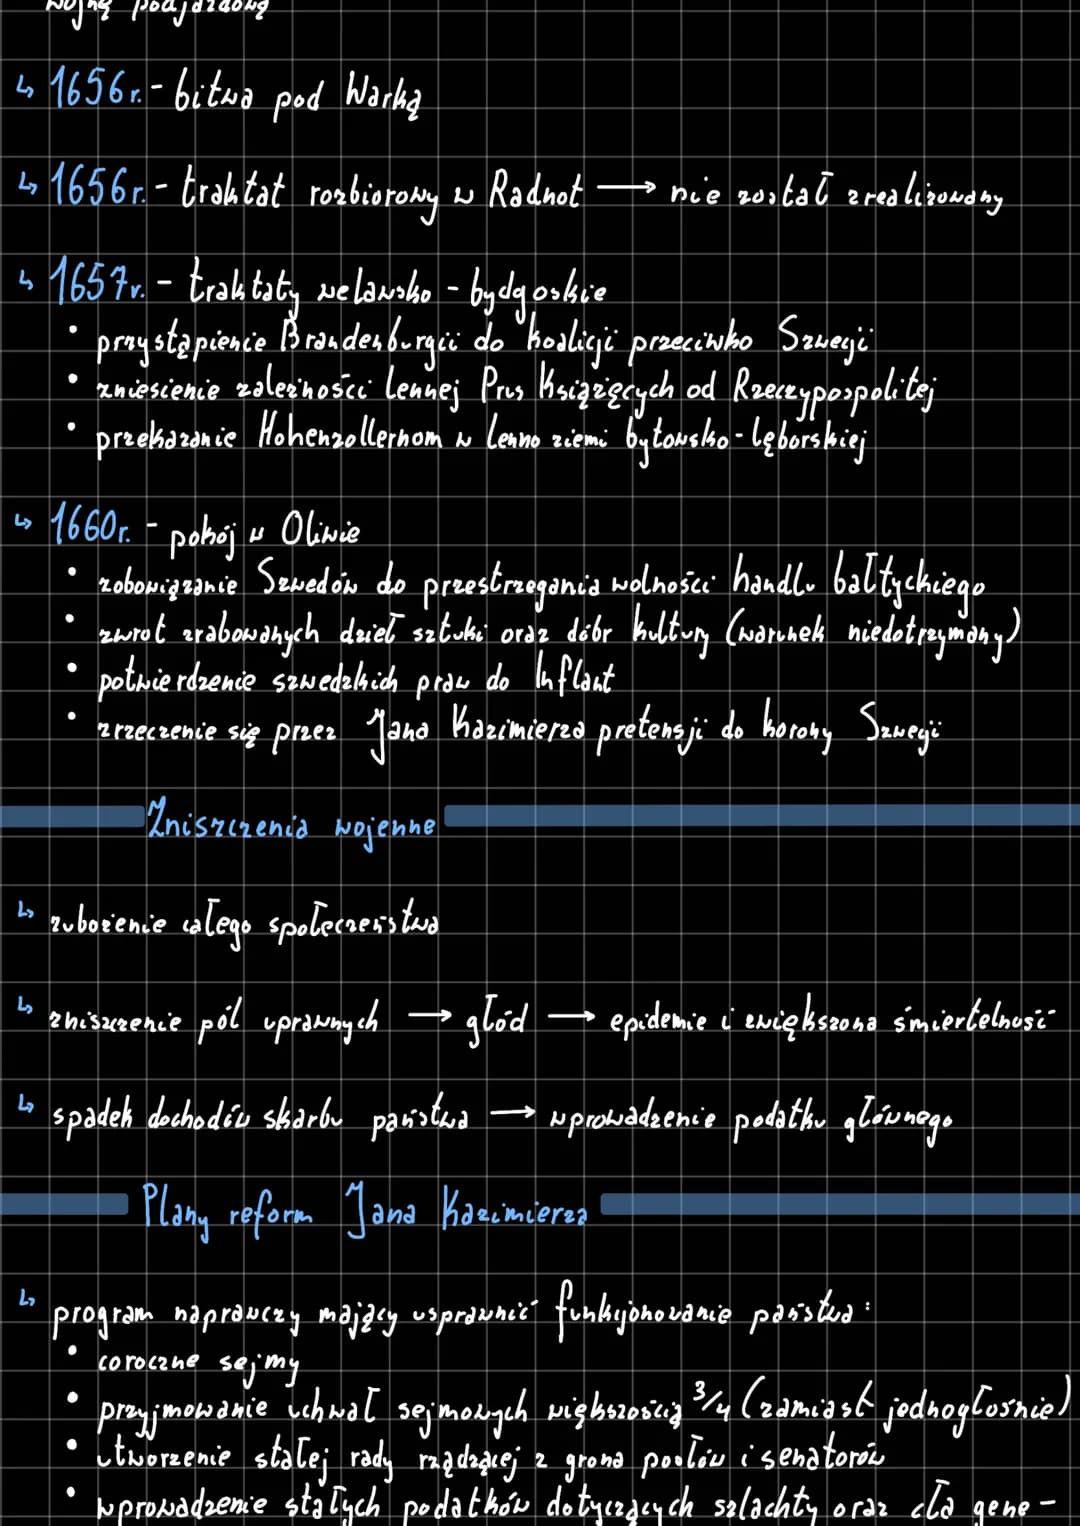 wojnę podjazdową
↳ 1656r. - bitwa pod Warką
↳ 1656r. - traktat rozbiorowy w Radnot → nie został zrealizowany
↳ 1657r. - traktaty welawsko - bydgoskie
• przystąpienie Brandenburgii do koalicji przeciwko Szwecji
• zniesienie zależności lennej Prus Książęcych od Rzeczypospolitej
• przekazanie Hohenzollernom w lenno ziemi bytowsko - lęborskiej
↳ 1660r. - pokój w Oliwie
• zobowiązanie Szwedów do przestrzegania wolności handlu bałtyckiego
• zwrot zrabowanych dzieł sztuki oraz dóbr kultury (warunek niedotrzymany)
• potwierdzenie szwedzkich praw do Inflant
• zrzeczenie się przez Jana Kazimierza pretensji do korony Szwecji
Zniszczenia wojenne
↳ zubożenie całego społeczeństwa
↳ zniszczenie pól uprawnych → głód → epidemie i zwiększona śmiertelność
↳ spadek dochodów skarbu państwa → wprowadzenie podatku głównego
Plany reform Jana Kazimierza
↳ program naprawczy mający usprawnić funkcjonowanie państwa:
• coroczne sejmy
• przyjmowanie uchwał sejmowych większością 3/4 (zamiast jednogłośnie)
• utworzenie stałej rady rządzącej z grona posłów i senatorów
• wprowadzenie stałych podatków dotyczących szlachty oraz cła gene -